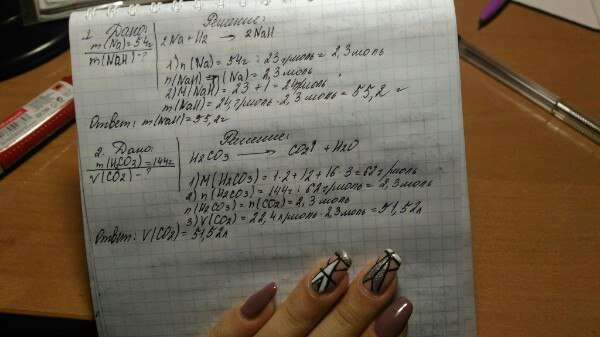 1. Дано:
m(Na)=54г
m(NaH)-?
Решение:
2Na+H2 → 2NaH
1) n(Na)=54г : 23 г/моль = 2,3 моль
n(NaH)= (Na)=2,3 моль
2) M(NaH)=23+1=24г/моль
m(NaH)=24г/моль·2,3 моль=55,2 г
Ответ: m(NaH)=55,2г
2. Дано:
m(HCO3)=144г
V(CO2)-?
Решение:
H2CO3 → CO2↑ + H2O
1) M(H2CO3)=1·2+12+16·3=62г/моль
2) n(H2CO3)=144г : 62г/моль=2,3моль
n(H2CO3)=n(CO2)=2,3 моль
3) V(CO2)=22,4л/моль·2,3моль=51,52л
Ответ: V(CO2)=51,52л